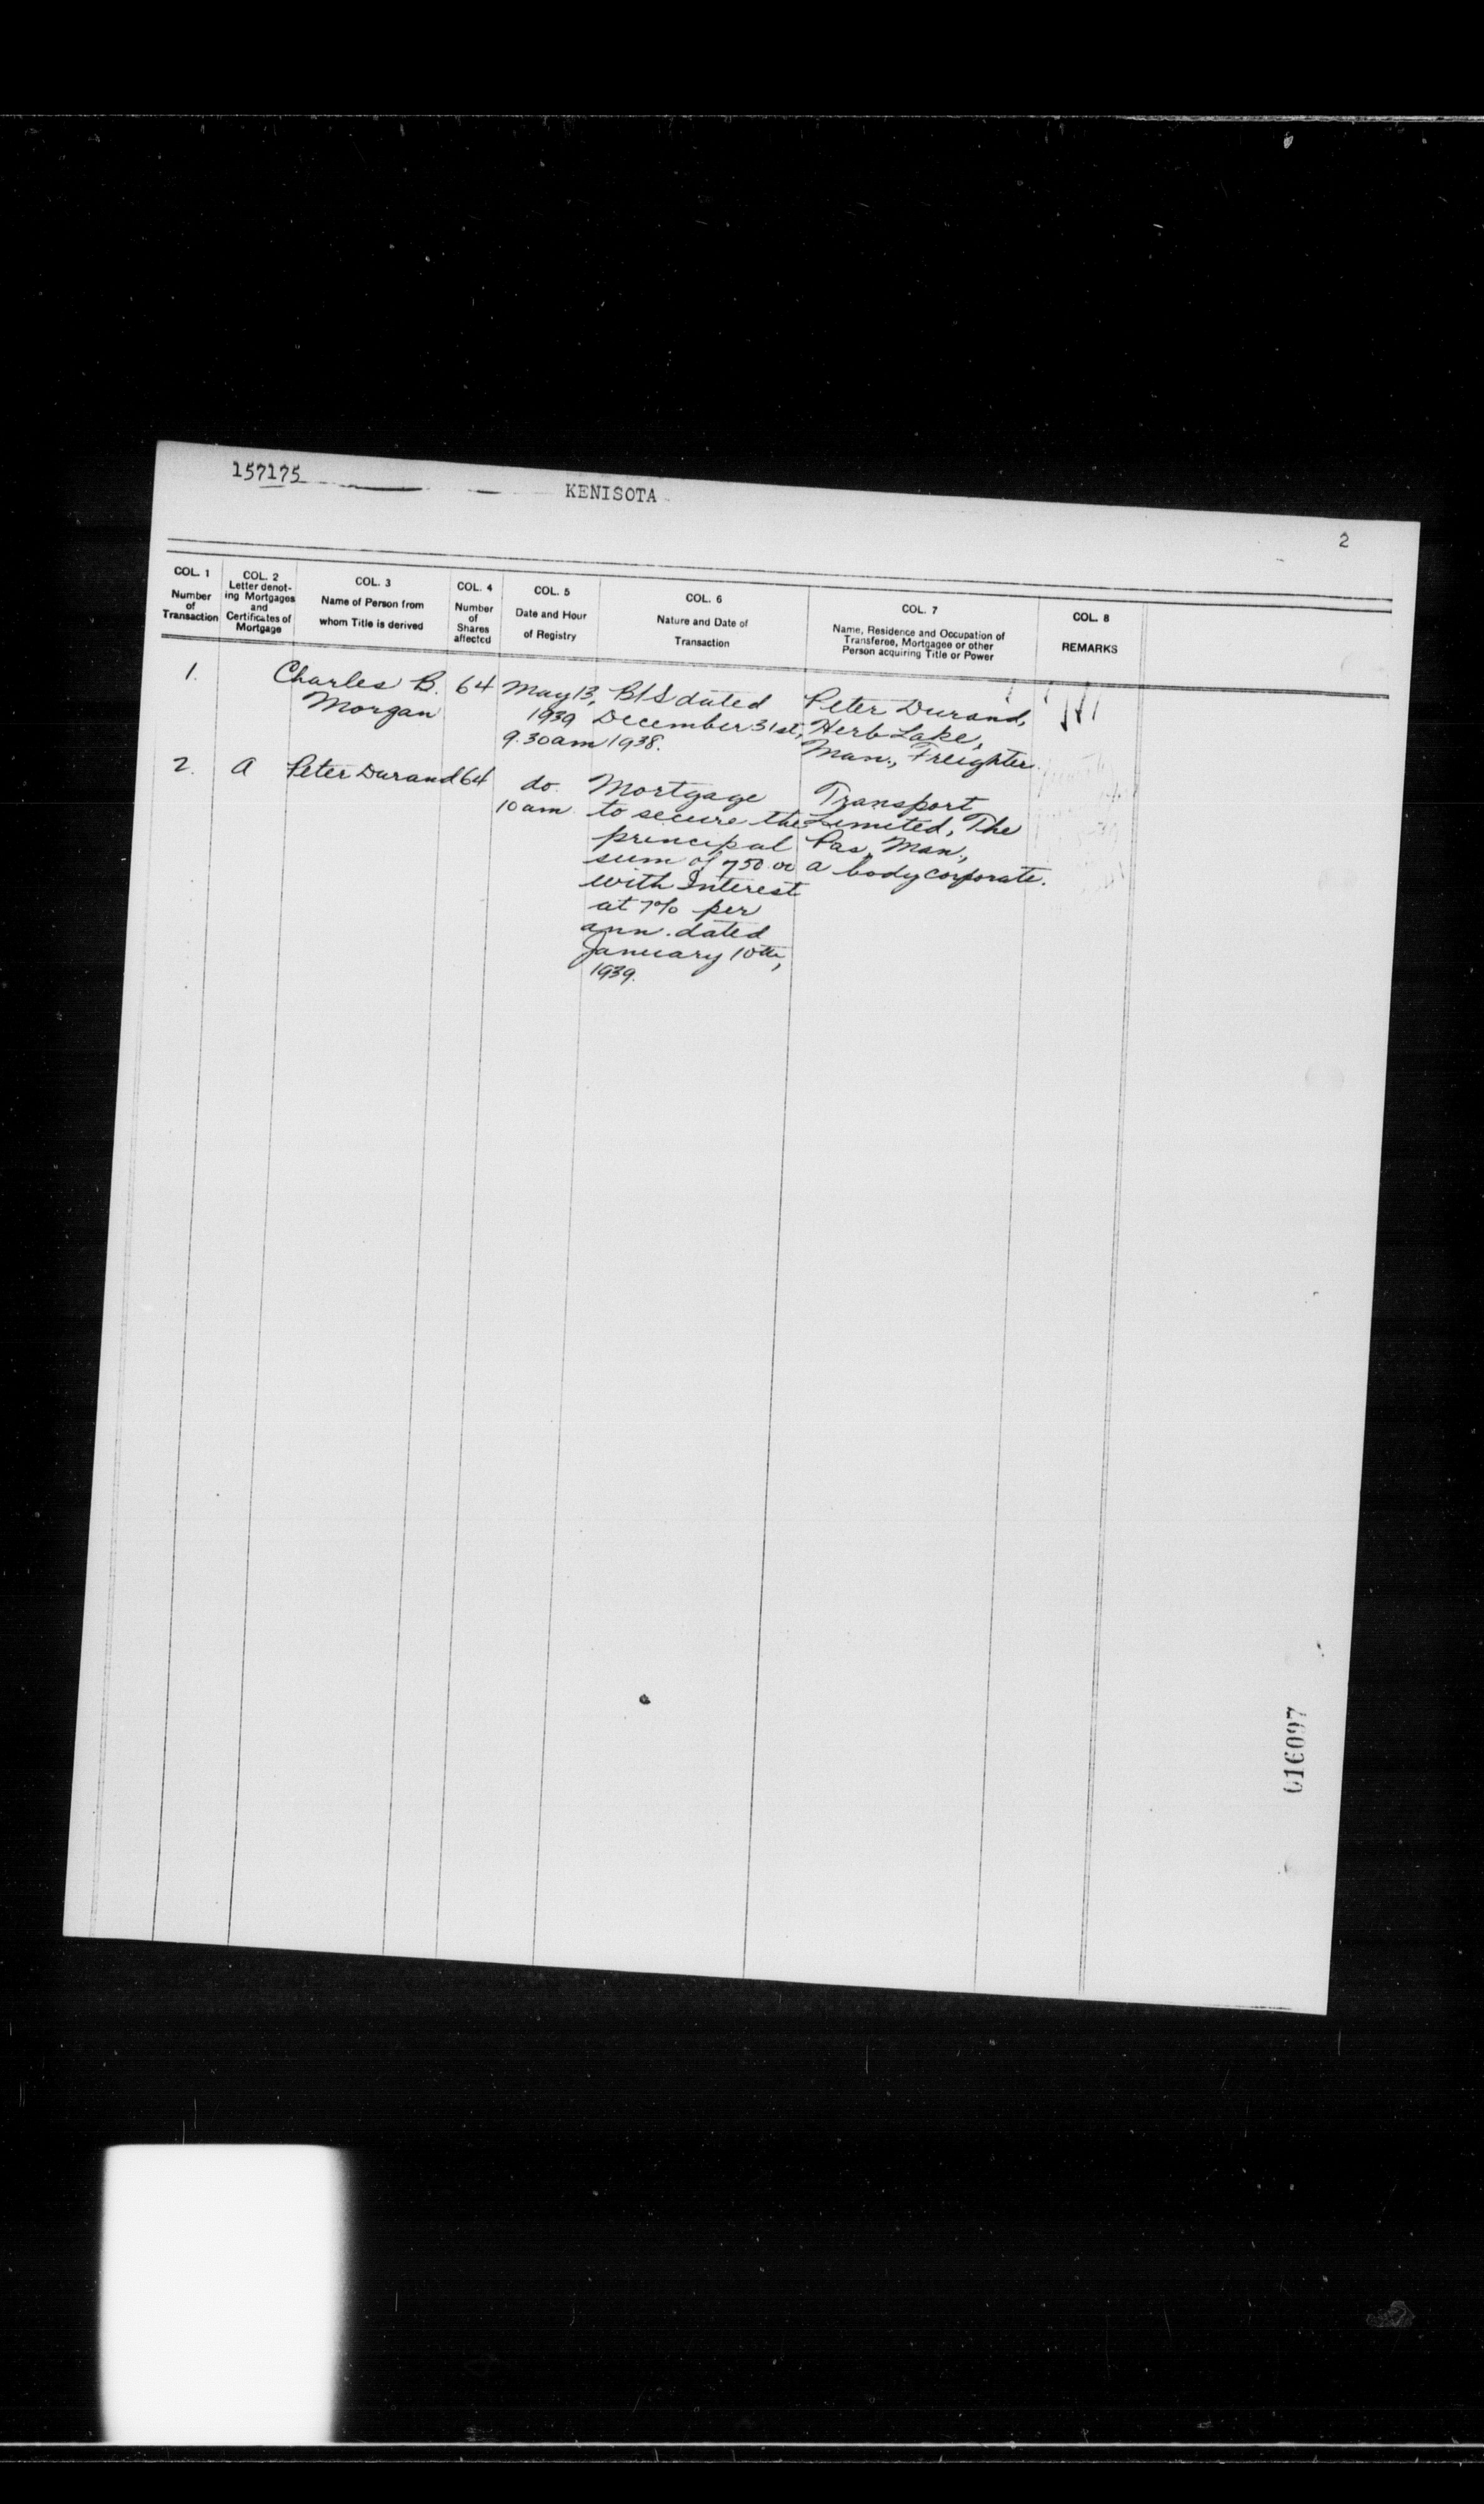 157175
KENISOTA
2
COL. 1
Number
of
Transaction
COL. 2
Letter denot-
ing Mortgages
and
Certificates of
Mortgage
COL. 3
Name of Person from
whom Title is derived
COL. 4
Number
of
Shares
affected
COL. 5
Date and Hour
of Registry
COL. 6
Nature and Date of
Transaction
COL. 7
Name, Residence and Occupation of
Transferee, Mortgagee or other
Person acquiring Title or Power
COL. 8
REMARKS
1.
Charles B.
Morgan
64
May 13,
1939
9.30am
B/S dated
December 31st,
1938.
Peter Durand,
Herb Lake,
Man., Freighter.
2.
A
Peter Durand
64
do.
10 am
Mortgage
to secure the
principal
sum of 750.00
with Interest
at 7% per
ann. dated
January 10th,
1939.
Transport
Limited, The
Pas, Man.,
a body corporate.
016097